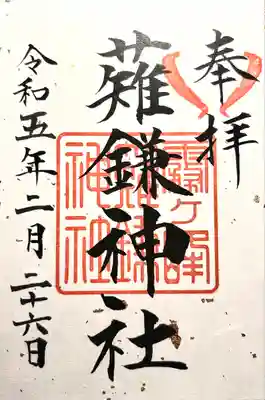 奉拝
薙鎌神社
令和五年二月二十六日